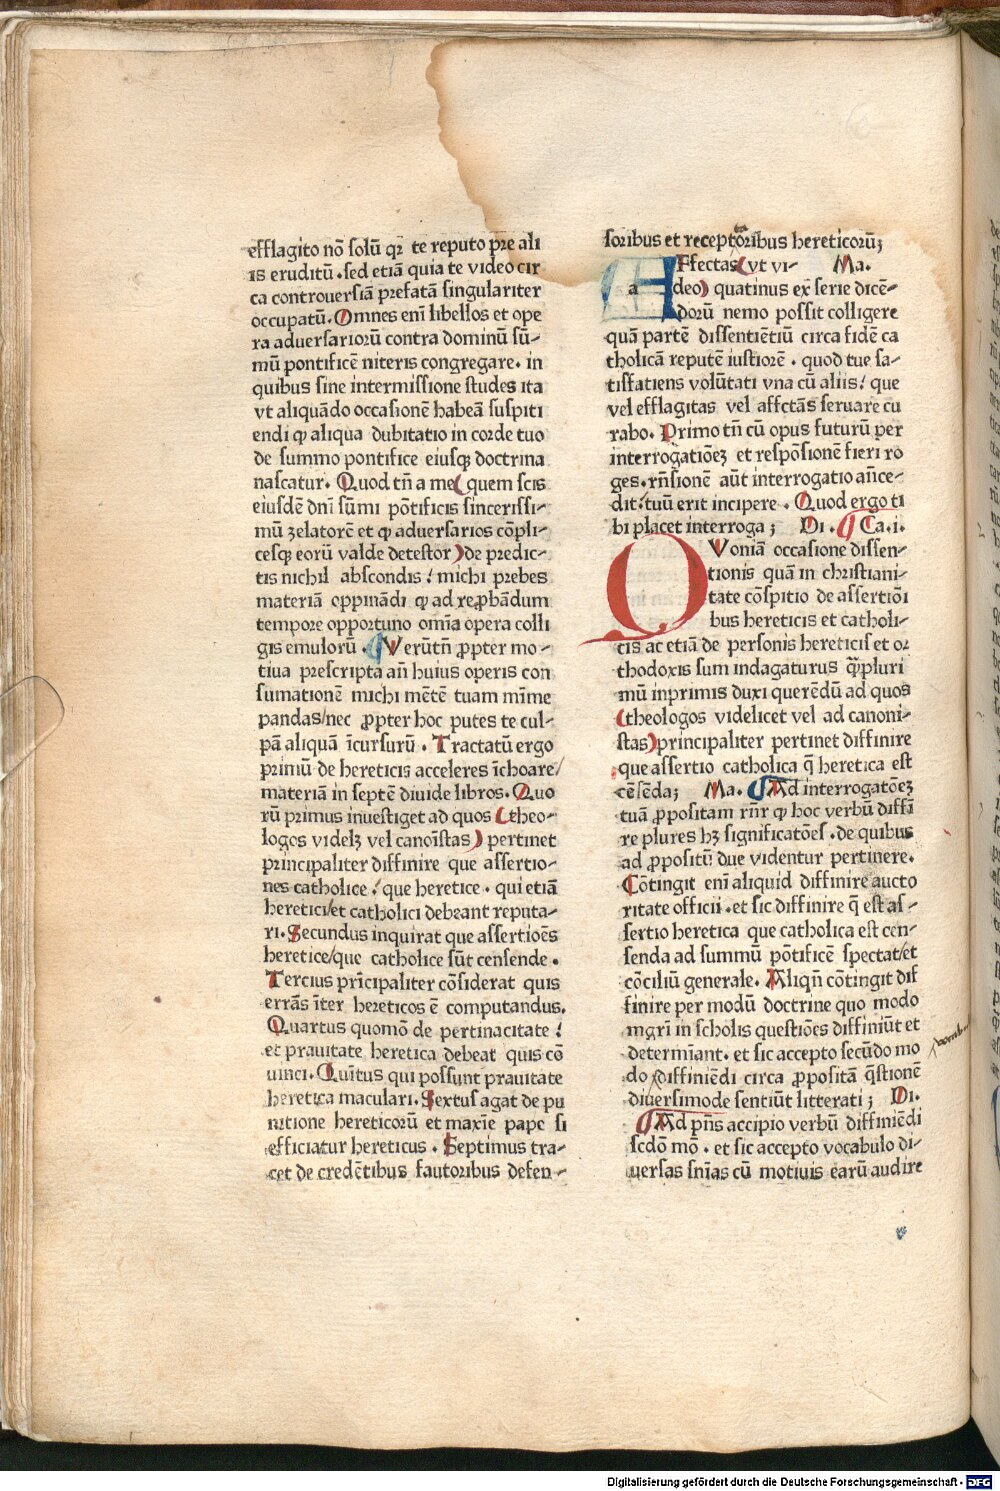 efflagito nō ſolū qꝛ te reputo pre ali
is eruditū . ſed etiā quia te video cir
ca controuerſiā prefatā ſingulariter
occupatū . Omnes enī libellos et ope
ra aduerſariorū contra dominū ſū-
mū pontificē niteris congregare . in
quibus ſine intermiſſione ſtudes ita
vt aliquādo occaſionē habeā ſuſpiti
endi ꝙ aliqua dubitatio in corde tuo
de ſummo pontifice eiuſqꝫ doctrina
naſcatur . Quod tn̄ a me ( quem ſcis
eiuſdē dn̄i ſūmi pōtificis ſinceriſſi-
mū zelatorē et ꝙ aduerſarios cōpli-
ceſqꝫ eorū valde deteſtor ) de predic-
tis nichil abſcondis : michi prebes
materiā oppinādi ꝙ ad reꝓbādum
tempore opportuno om̄ia opera colli
gis emulorū . ¶ Verūtn̄ ꝓpter mo-
tiua preſcripta an̄ huius operis con
ſumationē michi mētē tuam mīme
pandas/nec ꝓpter hoc putes te cul-
pā aliquā īcurſurū . Tractatū ergo
primū de hereticis acceleres īchoare/
materiā in ſeptē diuide libros. Quo
rū primus inueſtiget ad quos ( theo-
logos videlꝫ vel canoīſtas ) pertinet
principaliter diffinire que aſſertio-
nes catholice : que heretice . qui etiā
heretici/et catholici debeant reputa-
ri . Secundus inquirat que aſſertiōes
heretice/que catholice ſūt cenſende .
Tercius prīcipaliter cōſiderat quis
errās īter hereticos ē computandus.
Quartus quomō de pertinacitate :
et prauitate heretica debeat quis cō
uinci . Quītus qui poſſunt prauitate
heretica maculari . Sextus agat de pu
nitione hereticorū et maxīe pape ſi
efficiatur hereticus . Septimus tra-
ctet de credētibus fautoribus defen-
ſoribus et receptoribus hereticorū;
AFfectas ( vt vi- Ma.
a deo ) quatinus ex ſerie dicē-
dorū nemo poſſit colligere
quā partē diſſentiētiū circa fidē ca
tholicā reputē iuſtiorē . quod tue ſa-
tiſfatiens volūtati vna cū aliis : que
vel efflagitas vel affctās ſeruare cu
rabo . Primo tn̄ cū opus futurū per
interrogatiōeꝫ et reſpōſionē fieri ro
ges . rn̄ſionē aūt interrogatio an̄ce-
dit : tuū erit incipere . Quod ergo ti
bi placet interroga ; Di . ¶ Ca.i.
QVoniā occaſione diſſen-
tionis quā in chriſtiani-
tate cōſpitio de aſſertiōi
bus hereticis et catholi-
cis ac etiā de perſonis hereticiſ et or
thodoxis ſum indagaturus qꝫpluri
mū inprimis duxi querēdū ad quos
( theologos videlicet vel ad canoni-
ſtas ) principaliter pertinet diffinire
que aſſertio catholica q̄ heretica eſt
cēſēda; Ma. ¶ Ad interrogatōeꝫ
tuā ꝓpoſitam rn̄r ꝙ hoc verbū diffi
re plures hꝫ ſignificatōeſ . de quibus
ad ꝓpoſitū due videntur pertinere.
Cōtingit enī aliquid diffinire aucto
ritate officii . et ſic diffinire q̄ eſt aſ-
ſertio heretica que catholica eſt cen-
ſenda ad ſummū pōtificē ſpectat/et
cōciliū generale. Aliqn̄ cōtingit dif
finire per modū doctrine quo modo
mgr̄i in ſcholis queſtiōes diffiniūt et
determīant . et ſic accepto ſecūdo mo
do diffiniēdi circa ꝓpoſitā q̄ſtionē
diuerſimode ſentiūt litterati ; Di.
¶ Ad pn̄s accipio verbū diffiniēdi
ſcd̄o mō . et ſic accepto vocabulo di-
uerſas ſn̄ias cū motiuis earū audire
Digitalisierung gefördert durch die Deutsche Forschungsgemeinschaft - DFG